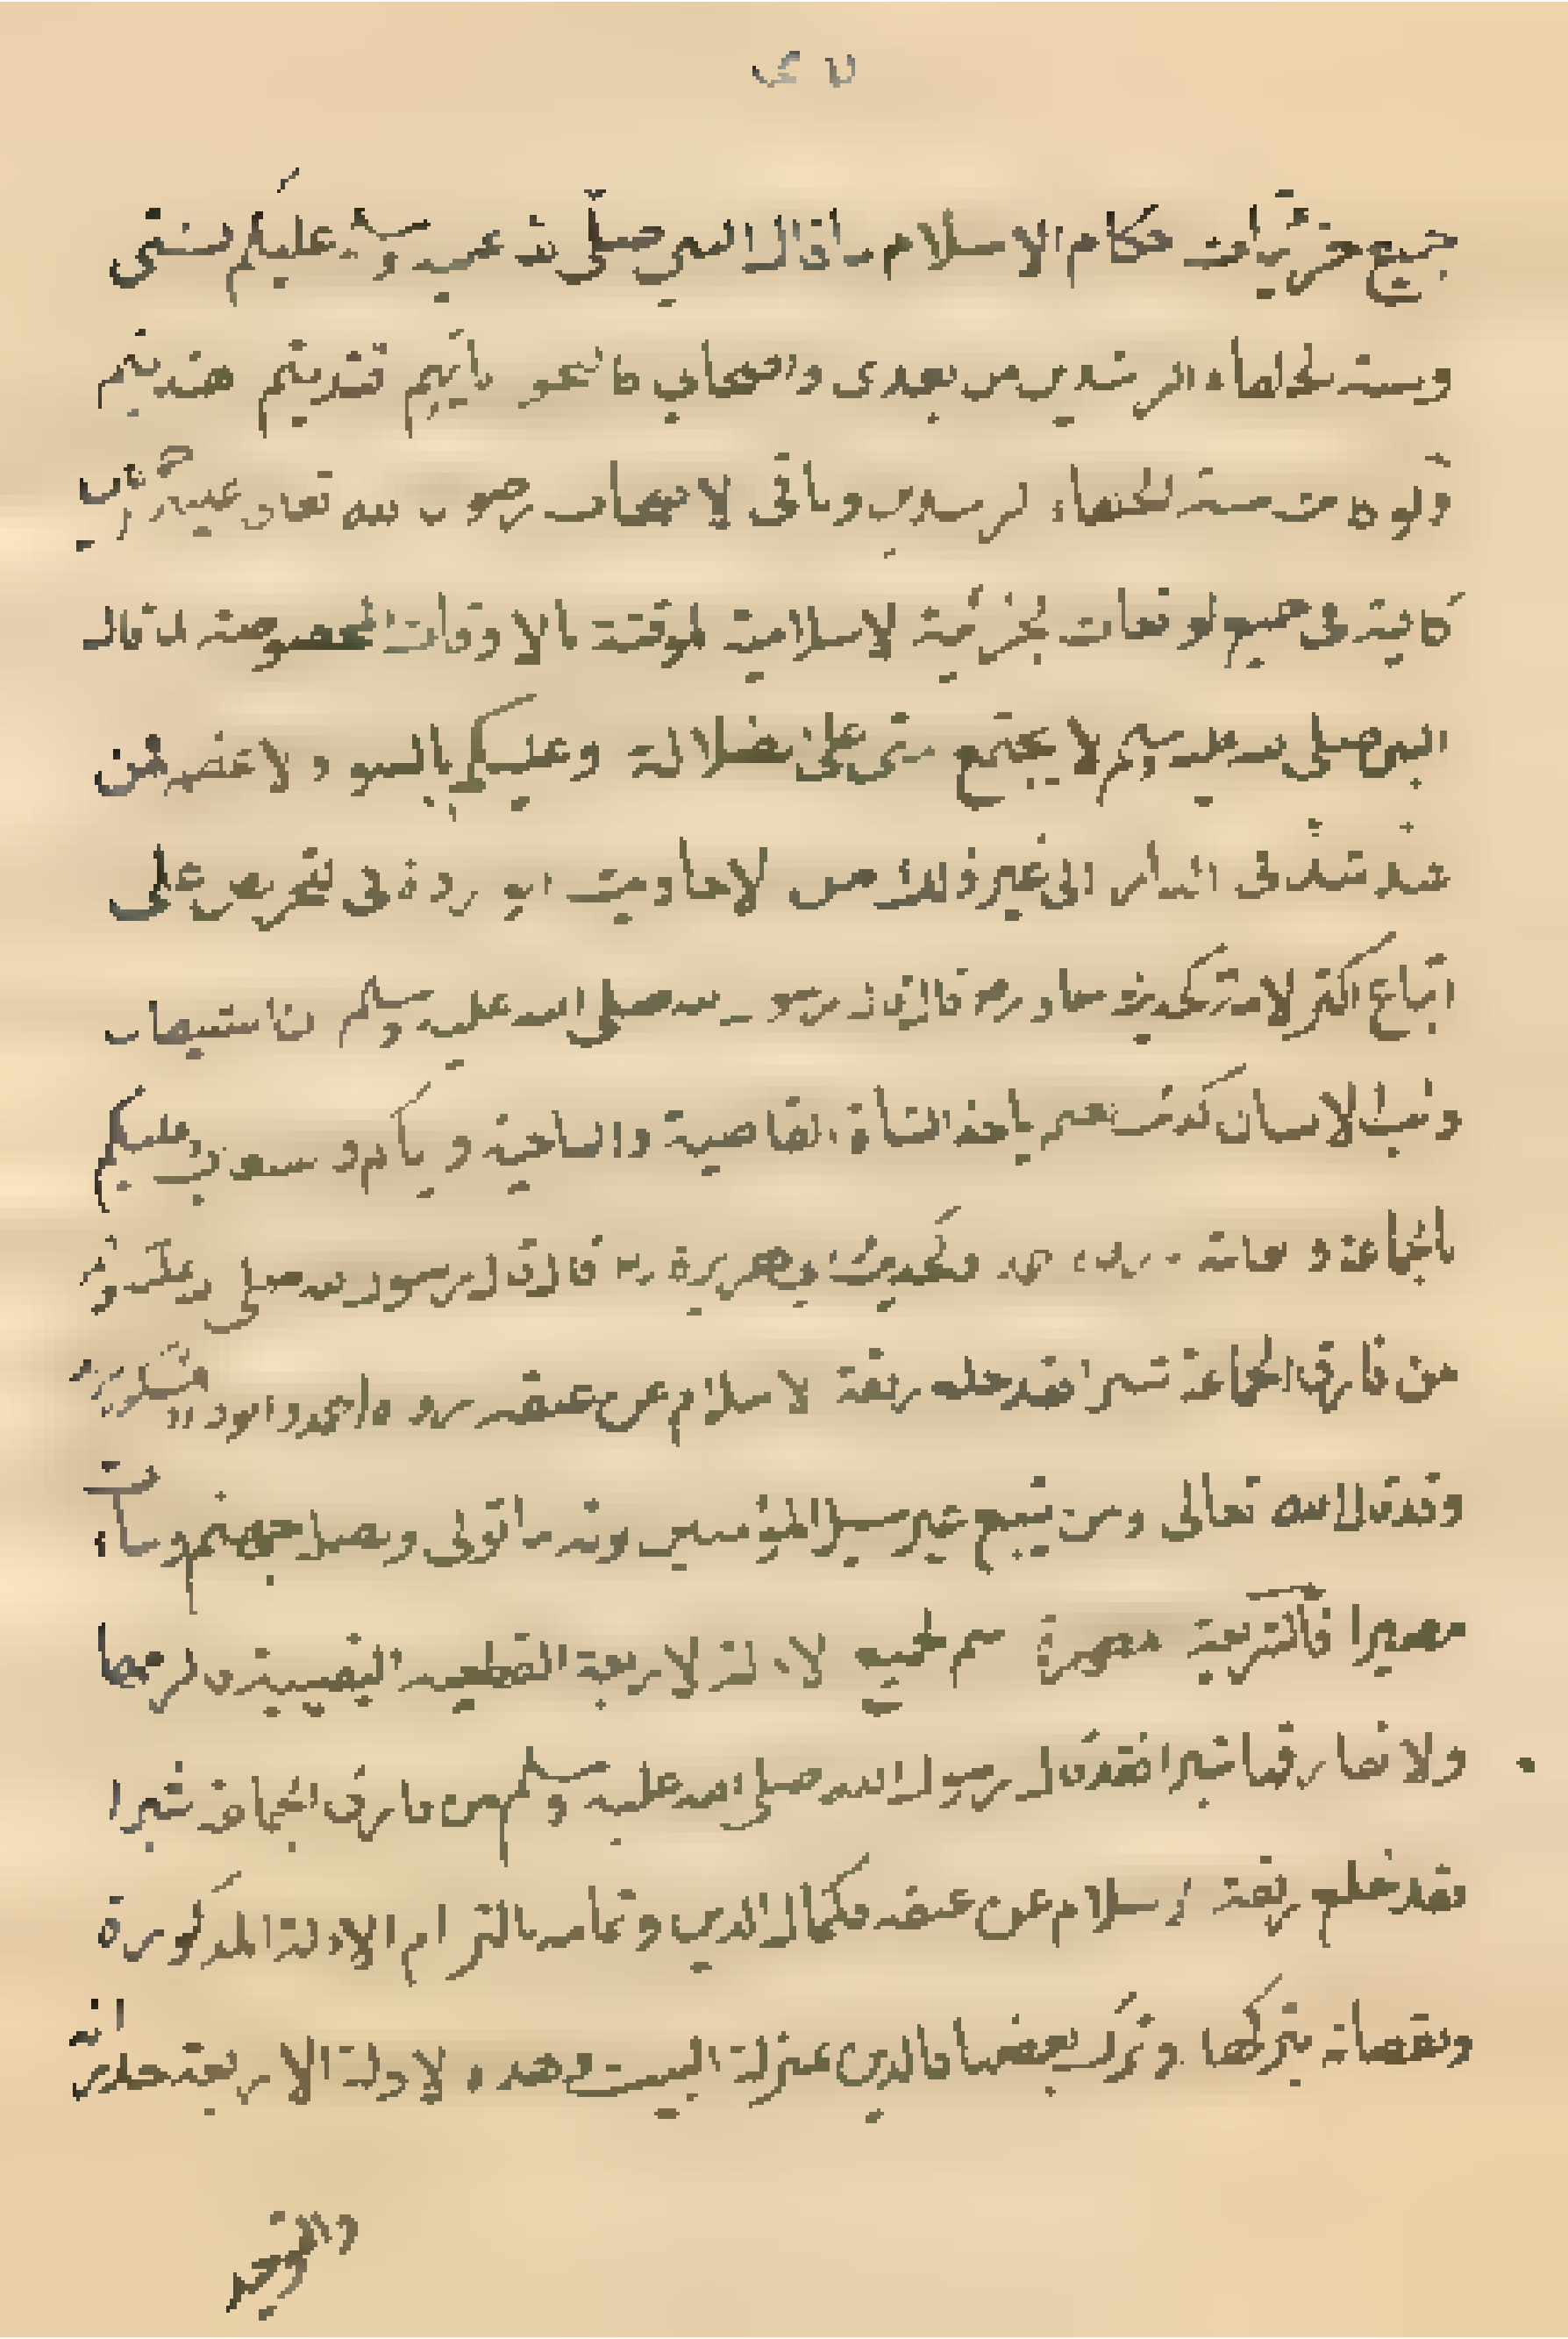 جميع جزئيات احكام الاسلام ما قال النبي صلى الله عليه وسلم عليكم بسنتي
وسنة الخلفاء الراشدين من بعدى واصحابي كالنجوم بايهم اقتديتم اهتديتم
وسنة الخلفاء الراشدين وباقى الاصحاب رضوان الله تعالى عليهم
كافية فى جميع الوقعات الجزئية الاسلامية الموقتة بالاوقات المخصوصة لما قال
النبي صلى الله عليه وسلم لا يجتمع امتى على الضلالة وعليكم بالسواد الاعظم فمن
شذ شذ فى النار الى غير ذلك من الاحاديث الواردة فى التحريص على
اتباع اكثر الامة كحديث معاذ رضه قال قال رسول الله صلى الله عليه وسلم ان الشيطان
ذئب الانسان كذئب الغنم ياخذ الشاة القاصية والناحية واياكم والشعاب وعليكم
بالجماعة والعامة وكحديث ابى هريرة رضه قال قال رسول الله صلى الله عليه وسلم
من فارق الجماعة شبرا فقد خلع ربقة الاسلام عن عنقه رواه احمد وابو داود
وقد قال الله تعالى ومن يتبع غير سبيل المؤمنين نوله ما تولى ونصله جهنم وساءت
مصيرا فالشريعة اسم لجميع الادلة الاربعة القطعية اليقينية
ولا تفارقها شبرا فقد قال رسول الله صلى الله عليه وسلم من فارق الجماعة شبرا
فقد خلع ربقة الاسلام عن عنقه فكمال الدين وتمامه بالتزام الادلة المذكورة
ونقصانه بتركها وترك بعضها فالدين بمنزلة البيت وهذه الادلة الاربعة جدرانه
والتوحيد